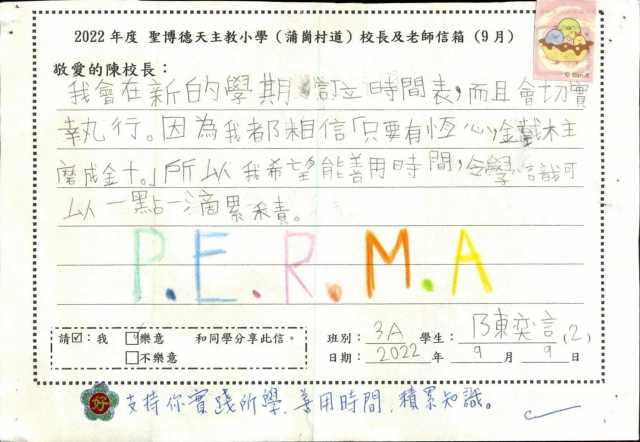 2022 年度 聖博德天主教小學（蒲崗村道）校長及老師信箱（9 月）
敬愛的陳校長：
我會在新的學期訂立時間表，而且會切實
執行。因為我都相信「只要有恆心，金鐵木主
磨成金十。」所以我希望能善用時間，令學識可
以一點一滴累積。
P.E.R.M.A
請☑：我 ☑樂意 和同學分享此信。
□不樂意
班別：3A 學生：陳奕言(2)
日期：2022 年 9 月 9 日
好 支持你實踐所學，善用時間，積累知識。